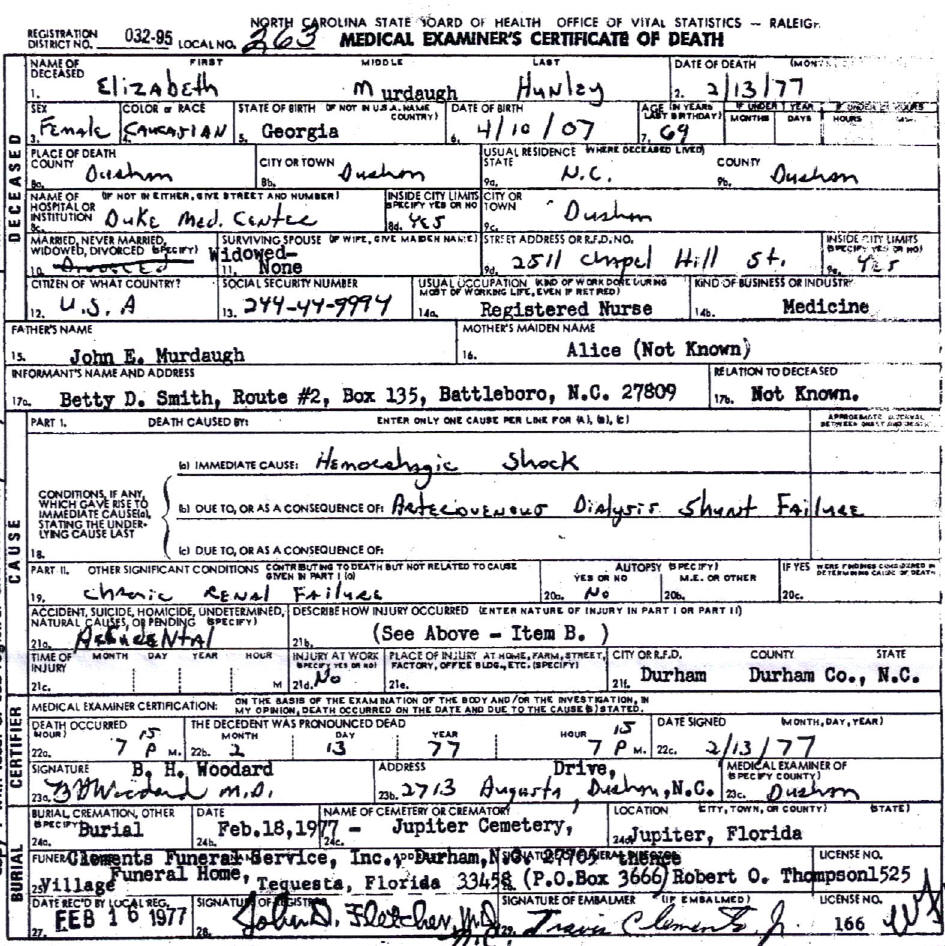 NORTH CAROLINA STATE BOARD OF HEALTH OFFICE OF VITAL STATISTICS — RALEIGH
REGISTRATION DISTRICT NO. 032-95 LOCAL NO. 263 MEDICAL EXAMINER'S CERTIFICATE OF DEATH
NAME OF DECEASED FIRST MIDDLE LAST DATE OF DEATH (MONTH
1. Elizabeth Murdaugh Hunley 2. 2/13/77
SEX COLOR or RACE STATE OF BIRTH (IF NOT IN U.S.A. NAME COUNTRY) DATE OF BIRTH AGE (IN YEARS LAST BIRTHDAY) IF UNDER 1 YEAR IF UNDER 24 HOURS
MONTHS DAYS HOURS
3. Female CAUCASIAN 5. Georgia 6. 4/10/07 7. 69
PLACE OF DEATH COUNTY CITY OR TOWN USUAL RESIDENCE (WHERE DECEASED LIVED) STATE COUNTY
8a. Durham 8b. Durham 9a. N.C. 9b. Durham
NAME OF HOSPITAL OR INSTITUTION (IF NOT IN EITHER, GIVE STREET AND NUMBER) INSIDE CITY LIMITS (SPECIFY YES OR NO) CITY OR TOWN
8c. Duke Med. Center 8d. YES 9c. Durham
MARRIED, NEVER MARRIED, WIDOWED, DIVORCED (SPECIFY) SURVIVING SPOUSE (IF WIFE, GIVE MAIDEN NAME) STREET ADDRESS OR R.F.D. NO. INSIDE CITY LIMITS (SPECIFY YES OR NO)
10. Divorced Widowed- 11. None 9d. 2511 Chapel Hill St. 9e. YES
CITIZEN OF WHAT COUNTRY? SOCIAL SECURITY NUMBER USUAL OCCUPATION (KIND OF WORK DONE DURING MOST OF WORKING LIFE, EVEN IF RETIRED) KIND OF BUSINESS OR INDUSTRY
12. U.S.A 13. 244-44-9994 14a. Registered Nurse 14b. Medicine
FATHER'S NAME MOTHER'S MAIDEN NAME
15. John E. Murdaugh 16. Alice (Not Known)
INFORMANT'S NAME AND ADDRESS RELATION TO DECEASED
17a. Betty D. Smith, Route #2, Box 135, Battleboro, N.C. 27809 17b. Not Known.
PART I. DEATH CAUSED BY: ENTER ONLY ONE CAUSE PER LINE FOR (A), (B), (C) APPROXIMATE INTERVAL BETWEEN ONSET AND DEATH
(a) IMMEDIATE CAUSE: Hemorrhagic Shock
CONDITIONS, IF ANY, WHICH GAVE RISE TO IMMEDIATE CAUSE(a), STATING THE UNDERLYING CAUSE LAST
(b) DUE TO, OR AS A CONSEQUENCE OF: Arteriovenous Dialysis Shunt Failure
18. (c) DUE TO, OR AS A CONSEQUENCE OF:
PART II. OTHER SIGNIFICANT CONDITIONS CONTRIBUTING TO DEATH BUT NOT RELATED TO CAUSE GIVEN IN PART I (a) AUTOPSY (SPECIFY) YES OR NO M.E. OR OTHER IF YES WERE FINDINGS CONSIDERED IN DETERMINING CAUSE OF DEATH
19. Chronic RENAL Failure 20a. No 20b. 20c.
ACCIDENT, SUICIDE, HOMICIDE, UNDETERMINED, NATURAL CAUSES, OR PENDING (SPECIFY) DESCRIBE HOW INJURY OCCURRED (ENTER NATURE OF INJURY IN PART I OR PART II)
21a. Accidental 21b. (See Above - Item B. )
TIME OF INJURY MONTH DAY YEAR HOUR INJURY AT WORK (SPECIFY YES OR NO) PLACE OF INJURY AT HOME, FARM, STREET, FACTORY, OFFICE BLDG., ETC. (SPECIFY) CITY OR R.F.D. COUNTY STATE
21c. M 21d. No 21e. 21f. Durham Durham Co., N.C.
MEDICAL EXAMINER CERTIFICATION: ON THE BASIS OF THE EXAMINATION OF THE BODY AND/OR THE INVESTIGATION, IN MY OPINION, DEATH OCCURRED ON THE DATE AND DUE TO THE CAUSE(S) STATED.
DEATH OCCURRED (HOUR) THE DECEDENT WAS PRONOUNCED DEAD MONTH DAY YEAR HOUR DATE SIGNED (MONTH, DAY, YEAR)
22a. 7 15 P M. 22b. 2 13 77 7 15 P M. 22c. 2/13/77
SIGNATURE B. H. Woodard ADDRESS Drive, MEDICAL EXAMINER OF (SPECIFY COUNTY)
23a. BH Woodard M.D. 23b. 2713 Augusta, Durham, N.C. 23c. Durham
BURIAL, CREMATION, OTHER (SPECIFY) DATE NAME OF CEMETERY OR CREMATORY LOCATION (CITY, TOWN, OR COUNTY) (STATE)
24a. Burial 24b. Feb.18,1977 - 24c. Jupiter Cemetery, 24d. Jupiter, Florida
Clements Funeral Service, Inc., Durham, N.C. 27705 thence LICENSE NO.
25. Village Funeral Home, Tequesta, Florida 33458 (P.O.Box 3666) Robert O. Thompson 1525
DATE REC'D BY LOCAL REG. SIGNATURE OF REGISTRAR SIGNATURE OF EMBALMER (IF EMBALMED) LICENSE NO.
27. FEB 16 1977 28. John D. Fletcher, M.D. 29. Travis Clements Jr. 166
DECEASED
CAUSE
CERTIFIER
BURIAL